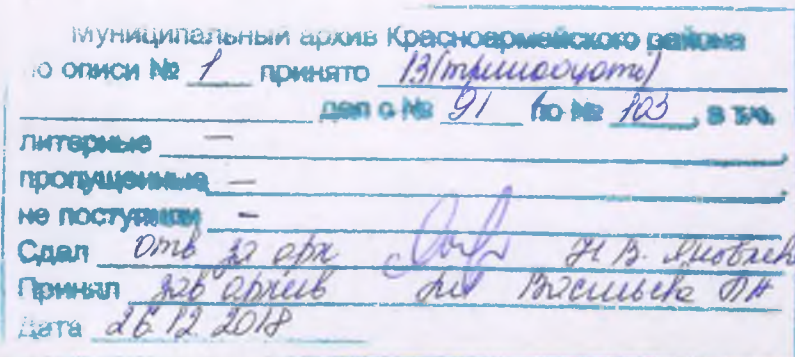 Муниципальный архив Красноармейского района
о описи № 1 принято 13 (тринадцать)
дел с № 91 по № 103, в т.ч.
литерные —,
пропущенные —,
не поступили —
Сдал Отв за арх Н В. Яковлев
Принял зав архив Васильева
Дата 26.12.2018